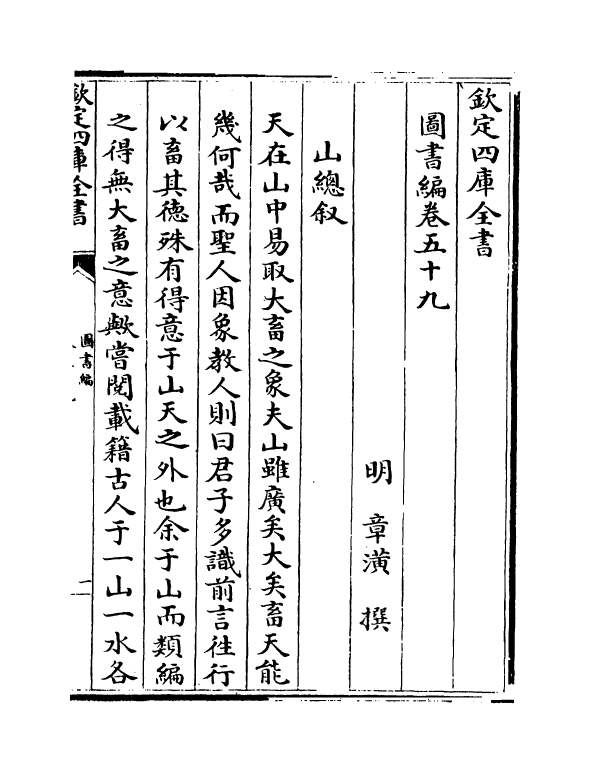 欽定四庫全書
圖書編卷五十九
明 章潢 撰
山總叙
天在山中易取大畜之象夫山雖廣矣大矣畜天能
幾何哉而聖人因象教人則曰君子多識前言徃行
以畜其德殊有得意于山天之外也余于山而類編
之得無大畜之意歟嘗閱載籍古人于一山一水各
欽定四庫全書
圖書編
二